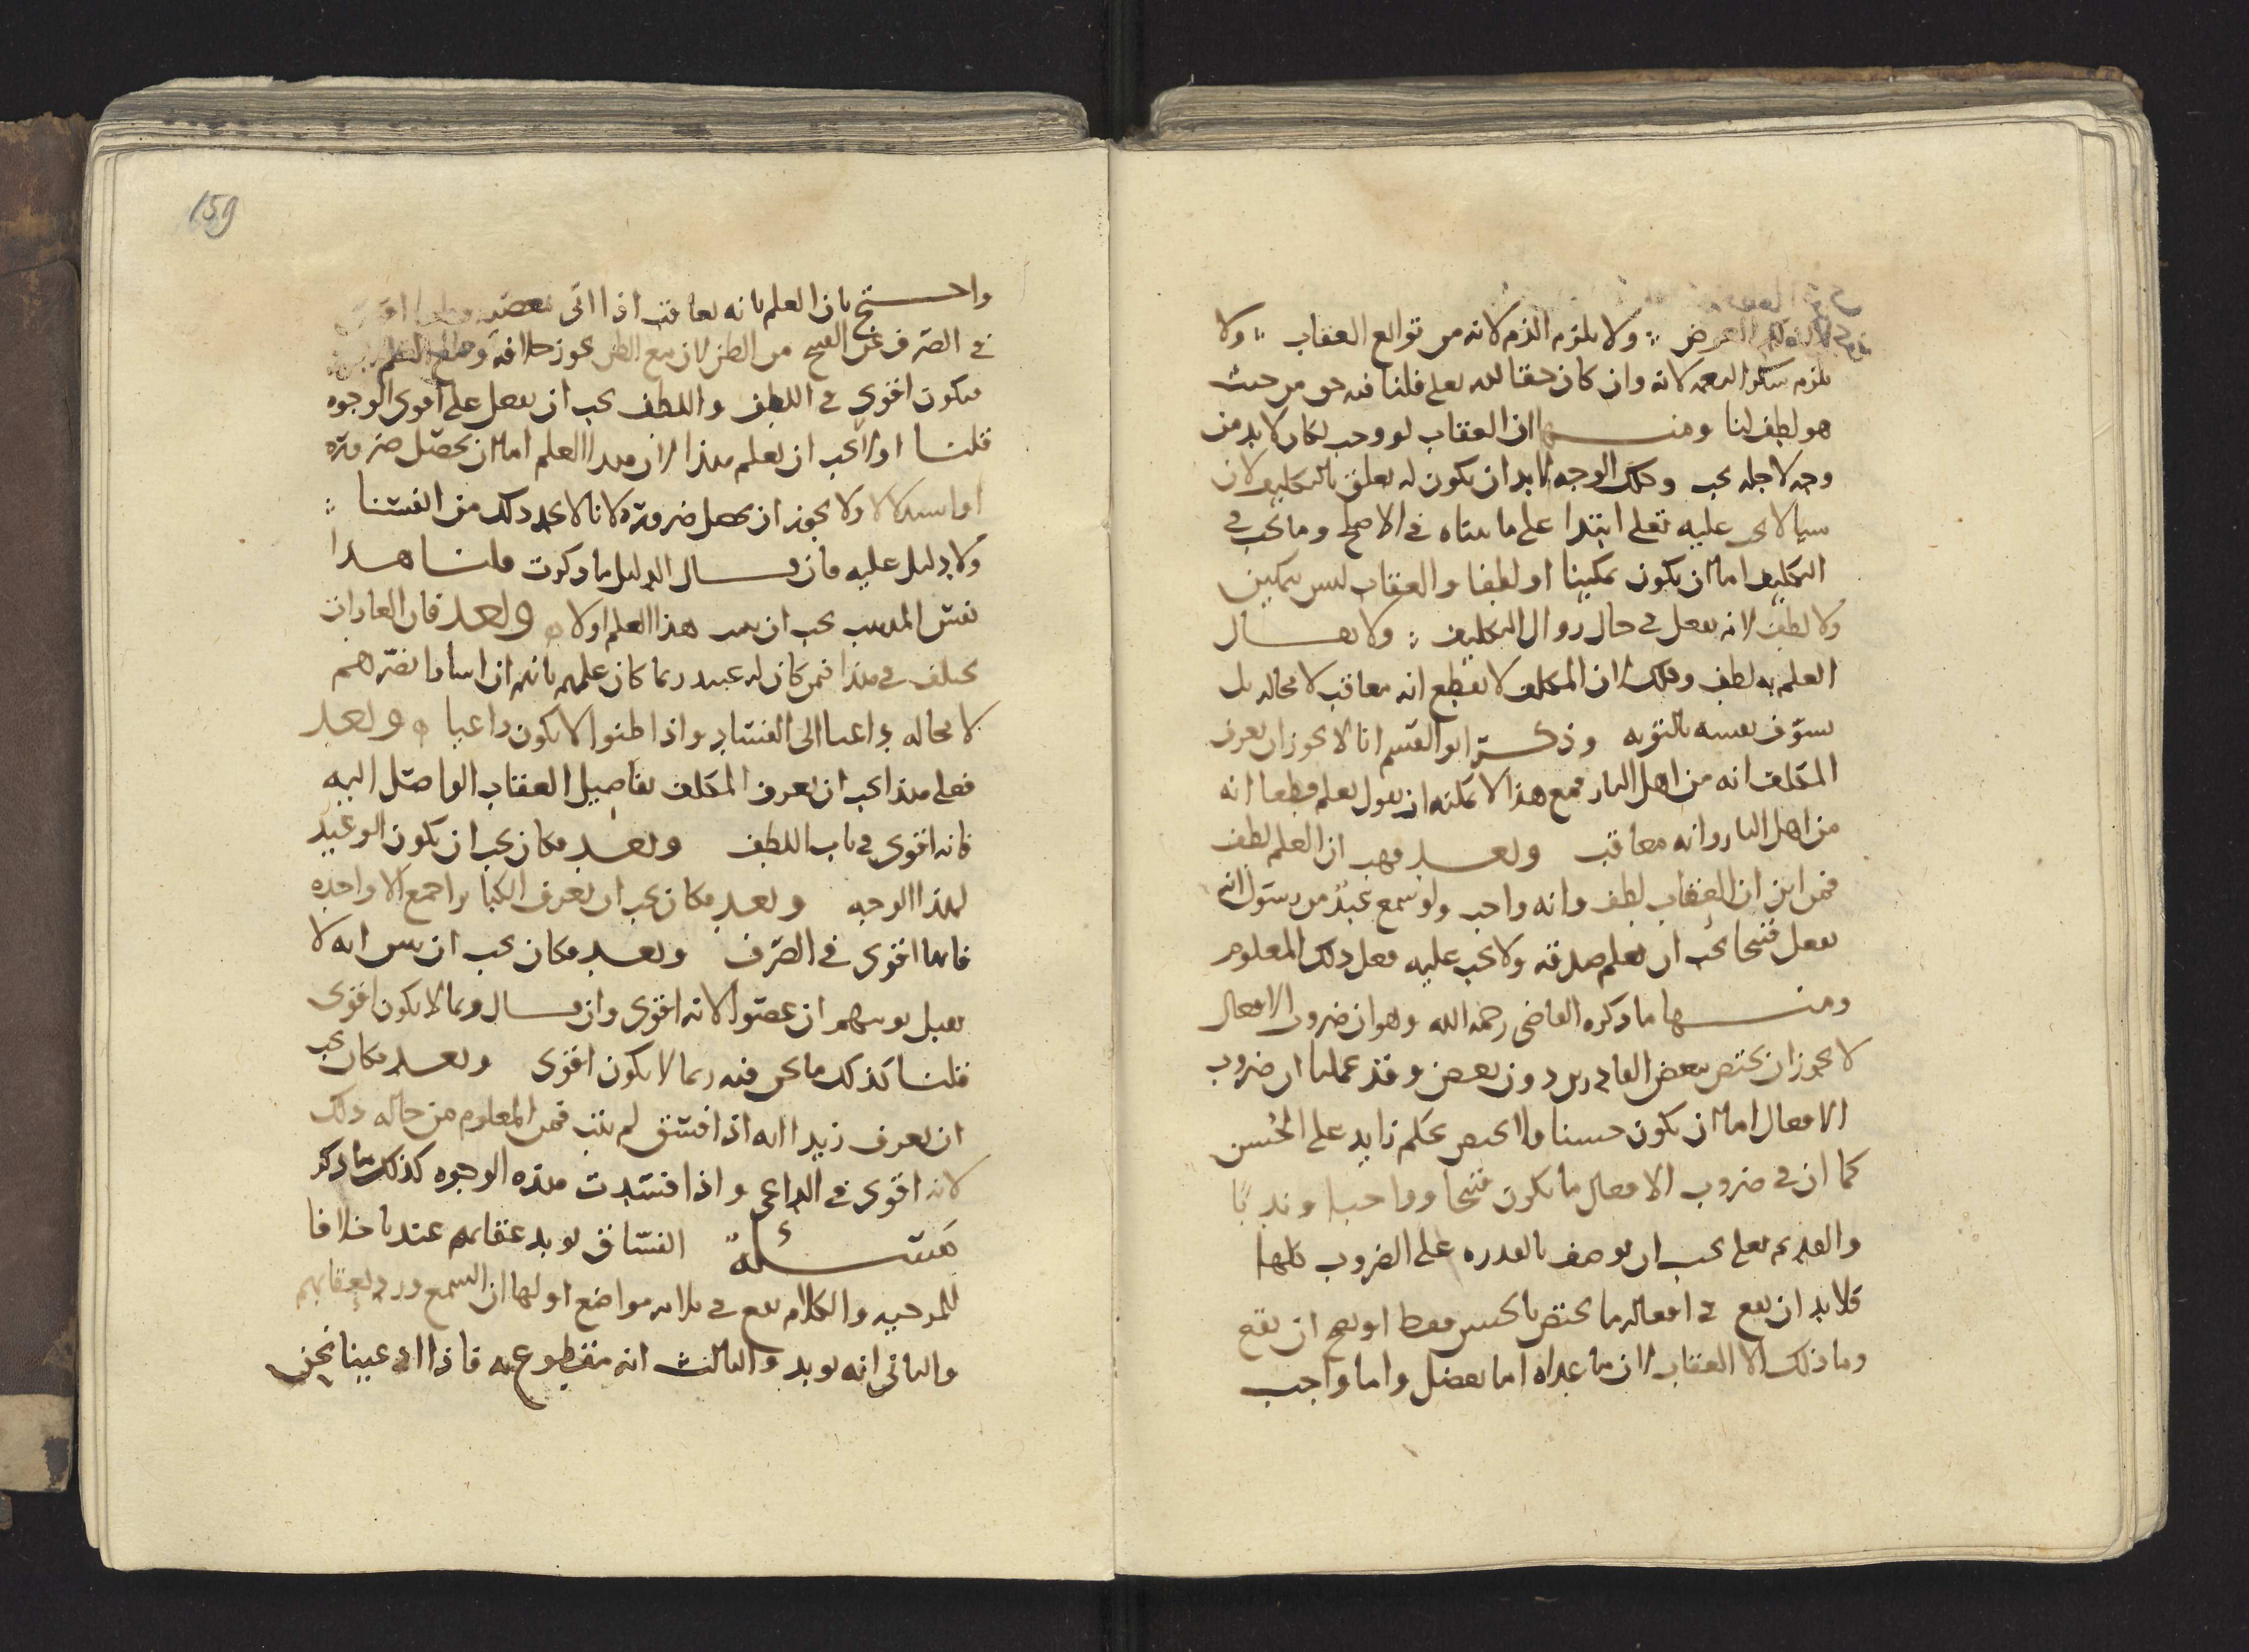 العرض ؛ ولا يلزم الذم لانه من توابع العقاب ؛ ولا
يلزم شكر النعمه لانه وان كان حقا لله تعلى قلنا فيه حق من حيث
هو لطف لنا ومنها ان العقاب لو وجب لكان لا بد من
وجه لاجله يجب وذلك الوجه لا بد ان يكون له تعلق بالتكليف لان
شيا لا يجب عليه تعلى ابتدا على ما بيناه في الاصلح وما يجب في
التكليف اما ان يكون تمكينا او لطفا والعقاب ليس بتمكين
ولا لطف لانه يفعل في حال زوال التكليف ؛ ولا يقال
العلم به لطف وذلك لان المكلف لا يقطع انه معاقب لا محاله بل
يسوف نفسه بالتوبه وذكر ابو القسم انا لا يجوز ان يعرف
المكلف انه من اهل النار فمع هذا لا يمكنه ان يقول يعلم قطعا انه
من اهل النار وانه معاقب وبعد فهب ان العلم لطف
فمن اين ان العقاب لطف وانه واجب ولو سمع عبد من رسول انه
يفعل قبيحا يجب ان يعلم صدقه ولا يجب عليه فعل ذلك المعلوم
ومنها ما ذكره القاضى رحمه الله وهو ان ضروب الافعال
لا يجوز ان يختص ببعض القادرين دون بعض وقد علمنا ان ضروب
الافعال اما ان يكون حسنا ولا يختص بحكم زايد على الحسن
كما ان في ضروب الافعال ما يكون قبيحا وواجبا وندبا
والقديم تعلى يجب ان يوصف بالقدره على الضروب كلها
فلا بد ان يقع في افعاله ما يختص بالحسن فقط او يصح ان يقع
وما ذلك الا العقاب لان ما عداه اما تفضل واما واجب
واحتج بان العلم بانه يعاقب اذا اتى
في الصرف عن القبيح من الظن لان مع الظن يجوز خلافه ومع العلم
فيكون اقوى في اللطف واللطف يجب ان يفعل على اقوى الوجوه
قلنا اولا يجب ان يعلم هذا لان هذا العلم اما ان يحصل ضروره
او استدلالا ولا يجوز ان يحصل ضروره لانا لا نجد ذلك من انفسنا ؛
ولا دليل عليه فان قال الدليل ما ذكرت قلنا هذا
نفس المذهب يجب ان يثبت هذا العلم اولا ه وبعد فان العادات
تختلف في هذا فمن كان له عبيد ربما كان علمهم بانهم ان اساوا يضرهم
لا محاله داعيا الى الفساد واذا ظنوا لا يكون داعيا ه وبعد
فعلى هذا يجب ان يعرف المكلف تفاصيل العقاب الواصل اليه
فانه اقوى في باب اللطف وبعد فكان يجب ان يكون الوعيد
لهذا الوجه وبعد فكان يجب ان يعرف الكبائر اجمع الا واحده
فانها اقوى في الصرف وبعد فكان يجب ان يبين انه لا
يقبل توبتهم ان عصوا لانه اقوى وان قال ربما لا يكون اقوى
قلنا كذلك ما نحن فيه ربما لا يكون اقوى وبعد فكان يجب
ان يعرف زيدا انه اذا فسق لم يتب فمن المعلوم من حاله ذلك
لانه اقوى في الداعى واذا فسدت هذه الوجوه كذلك ما ذكر
مسئلة الفساق يوبد عقابهم عندنا خلافا
للمرجيه والكلام يقع في ثلاثه مواضع اولها ان السمع ورد بعقابهم
والثانى انه يوبد والثالث انه مقطوع به فاذا ادعينا نحن
159